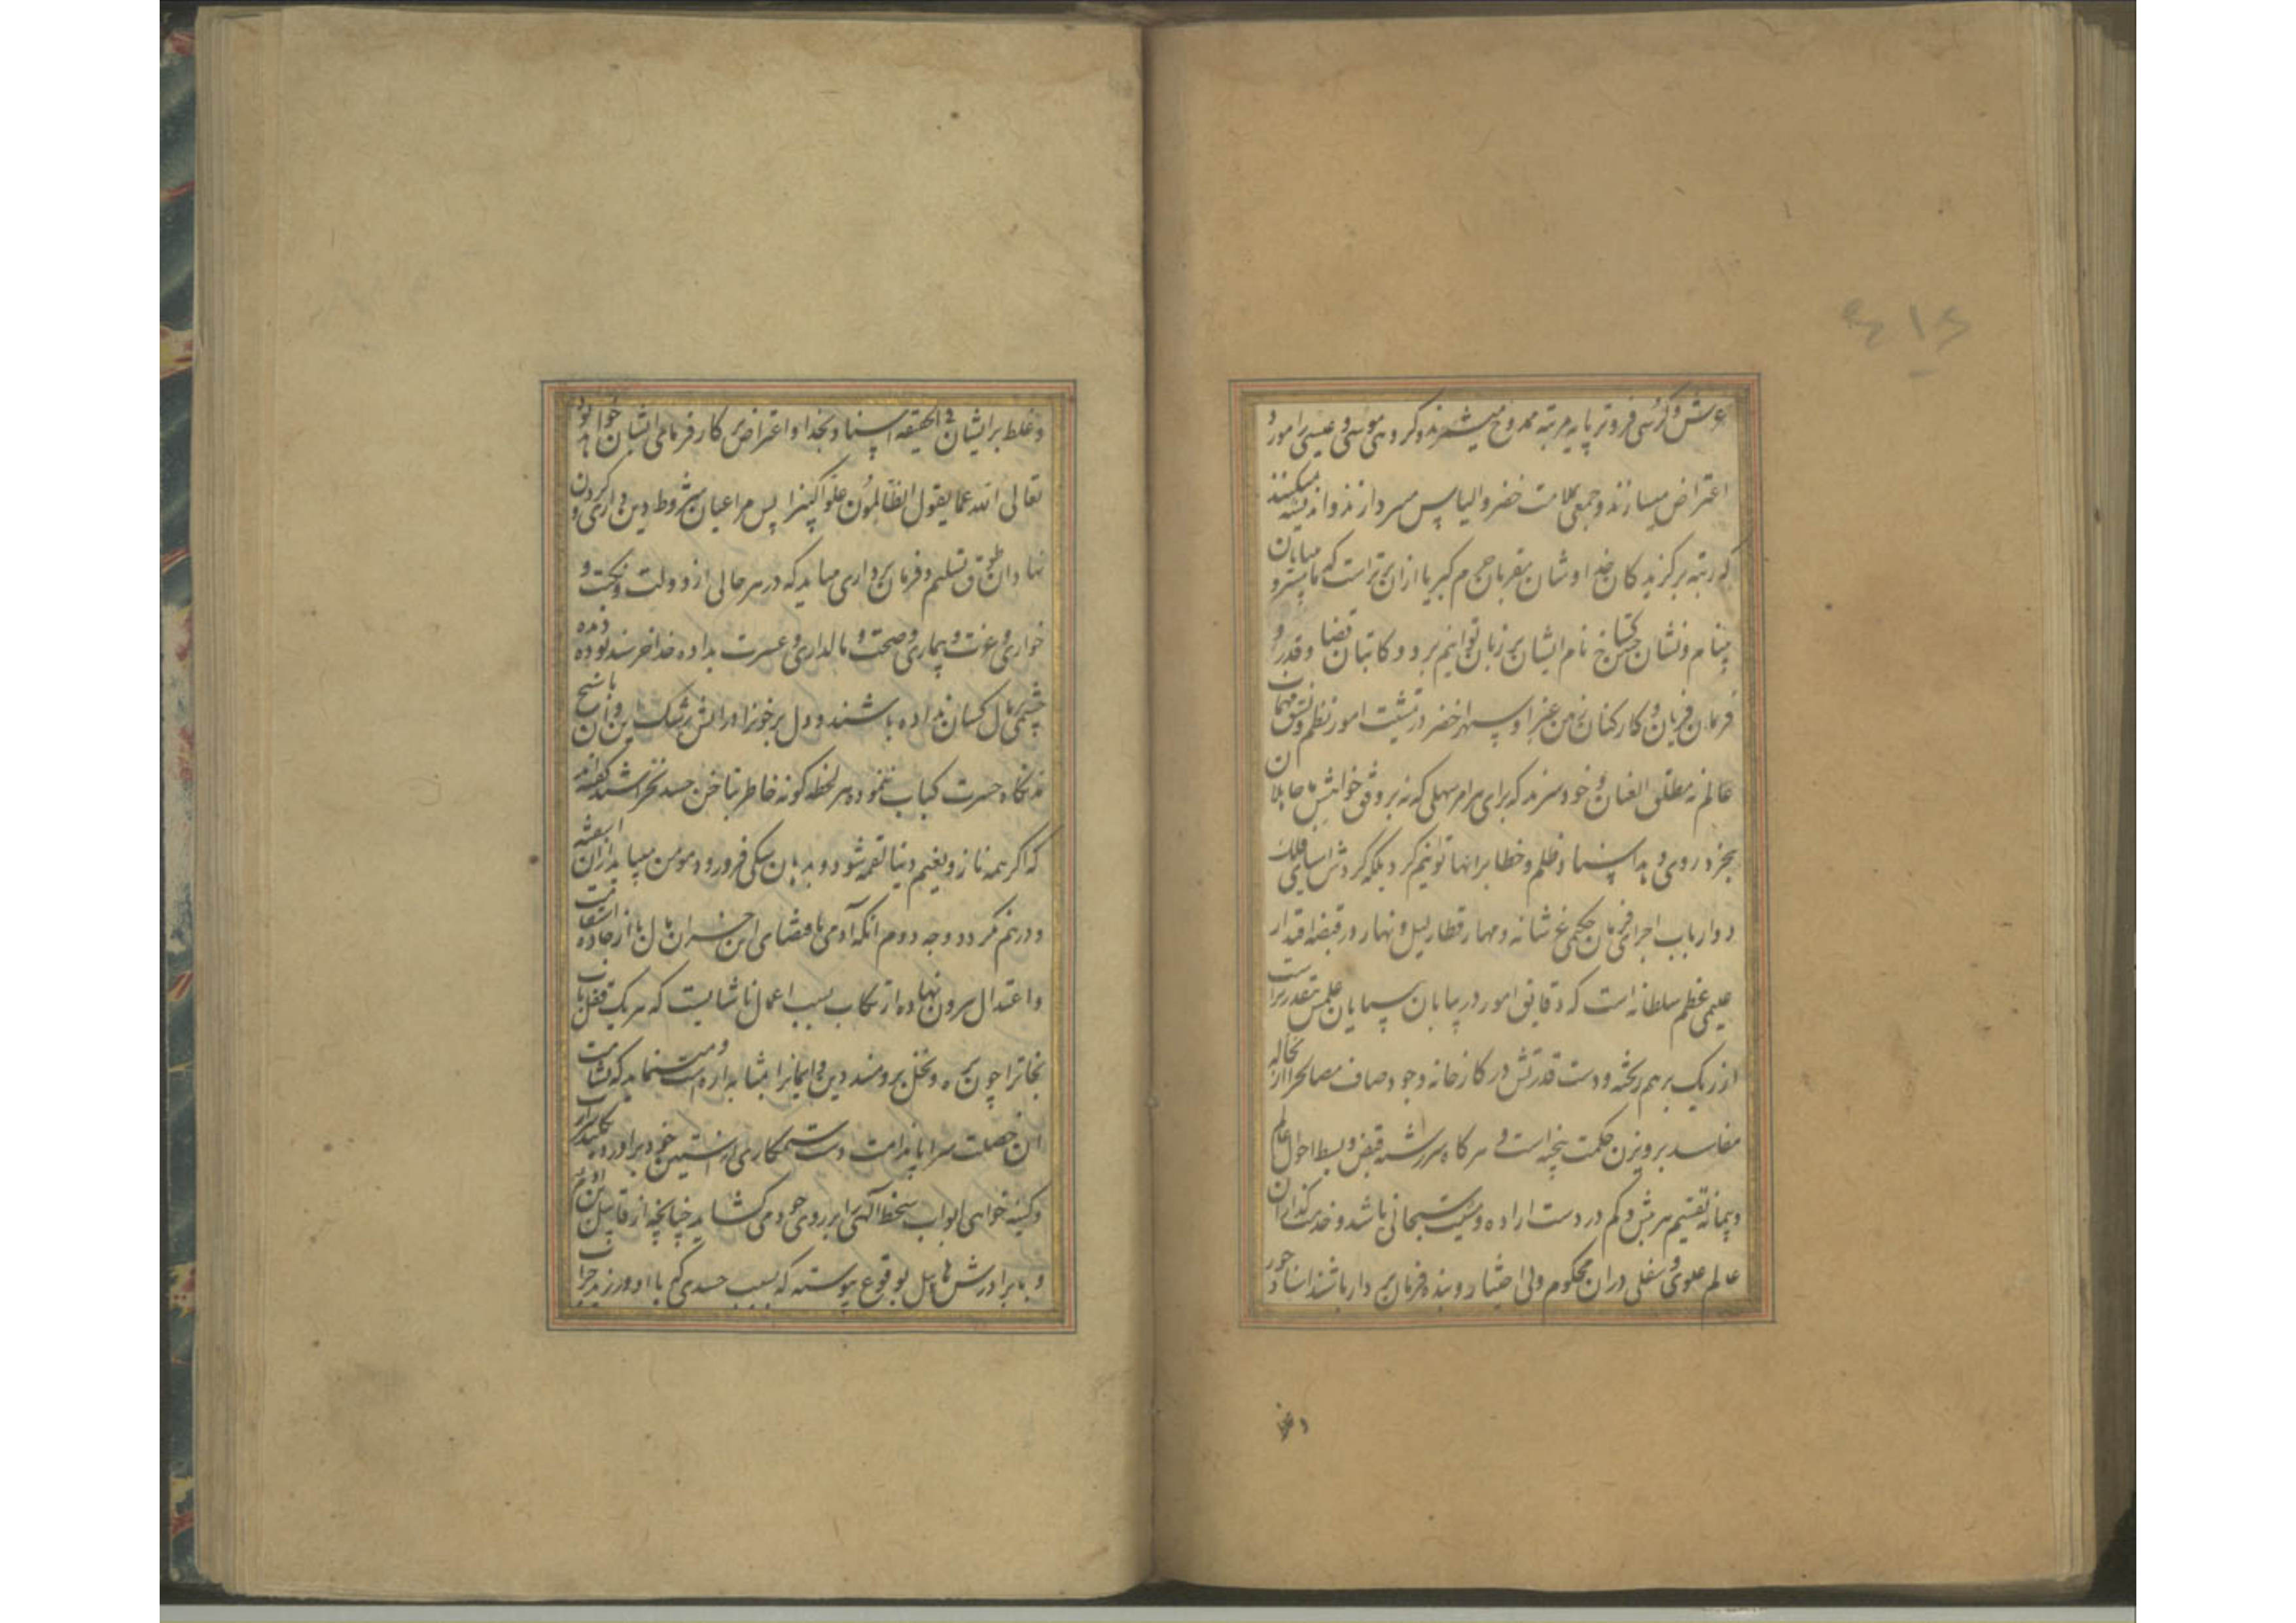 عرش و کرسی فروتر پایه مرتبه ممدوح میشمرند و گروهی موسی و عیسی را مورد
اعتراض میسازند و جمعی بملامت خضر و الیاس میپردازند و اندیشه میکنند
که رتبه برگزیدگان خدا و شان مقربان حرم کبریا ازان برتر است که ما
بینام و نشان گستاخ نام ایشان بر زبان توانیم برد و کاتبان قضا و قدر و
فرمان فرمایان و کارکنان زمین غبرا و سپهر اخضر در تمشیت امور نظم و نسق مهمات
عالم نه مطلق العنان و خودسرند که برای هر امر سهلی که نه بر وفق خواهش ما جاهلان
بجز در روی و بد اسناد ظلم و خطا بر آنها توانیم کرد بلکه گردش آسیای فلک
دوار باب اجرای فرمان حکیمی عز شانه و مهار قطار لیل و نهار در قبضه اقتدار
علیمی عظم سلطانه است که دقایق امور در بیابان بی پایان علمش مقدر تر است
از ریک بر هم ریخته و دست قدرتش در کارخانه وجود صاف مصالح را از نخاله
مفاسد پرویزن حکمت بیخته است و هر گاه سر رشته قبض و بسط احوال عالم
و پیمانه تقسیم هر بیش و کم در دست اراده و مشیت سبحانی باشد و خدمت گذاران
عالم علوی و سفلی دران محکوم و بی اختیار و بنده فرمان بردار باشند اسناد جور
و غلط
و غلط بر ایشان فی الحقیقه اسناد بخدا و اعتراض بر کارفرمای ایشان خواهد بود
تعالی الله عما یقول الظالمون علوا کبیرا پس مراعیان شروط دین داری و گردن
نهادان طوق تسلیم و فرمان برداری را میباید که در هر حالی از دولت و نکبت و
خواری و عزت و بیماری و صحت و مالداری و عسرت بداده خدا خرسند بوده دیده
چشم بمال کسان نداده باشند و دل بر خود را در آتش رشک این و آن بسیخ
نگاه حسرت کباب ننموده هر لحظه گونه خاطر بناخن حسد نخراشند گفته اند
که اگر همه ناز و نعیم دنیا لقمه شود و بدهان سگی فرو رود مومن میباید ازان آشفته
و درهم نگردد وجه دوم آنکه آدمی باقتضای این خسران مال پا از جاده استقامت
و اعتدال بیرون نهاده ارتکاب بسبب اعمال ناشایست که هر یک قفل باب
نجاتراچون پره و نخل برومند دین و ایمانرا بمثابه اره است مینماید که شامت
این خصلت سراپا ندامت دست ستمکاری از آستین خود برآورده بکلید
و کینه خواهی ابواب سخط الهی را بر روی خود می گشاید چنانچه از قابیل ابن آدم
و با برادرش هابیل بوقوع پیوسته که بسبب حسدی که با او ورزید خراب